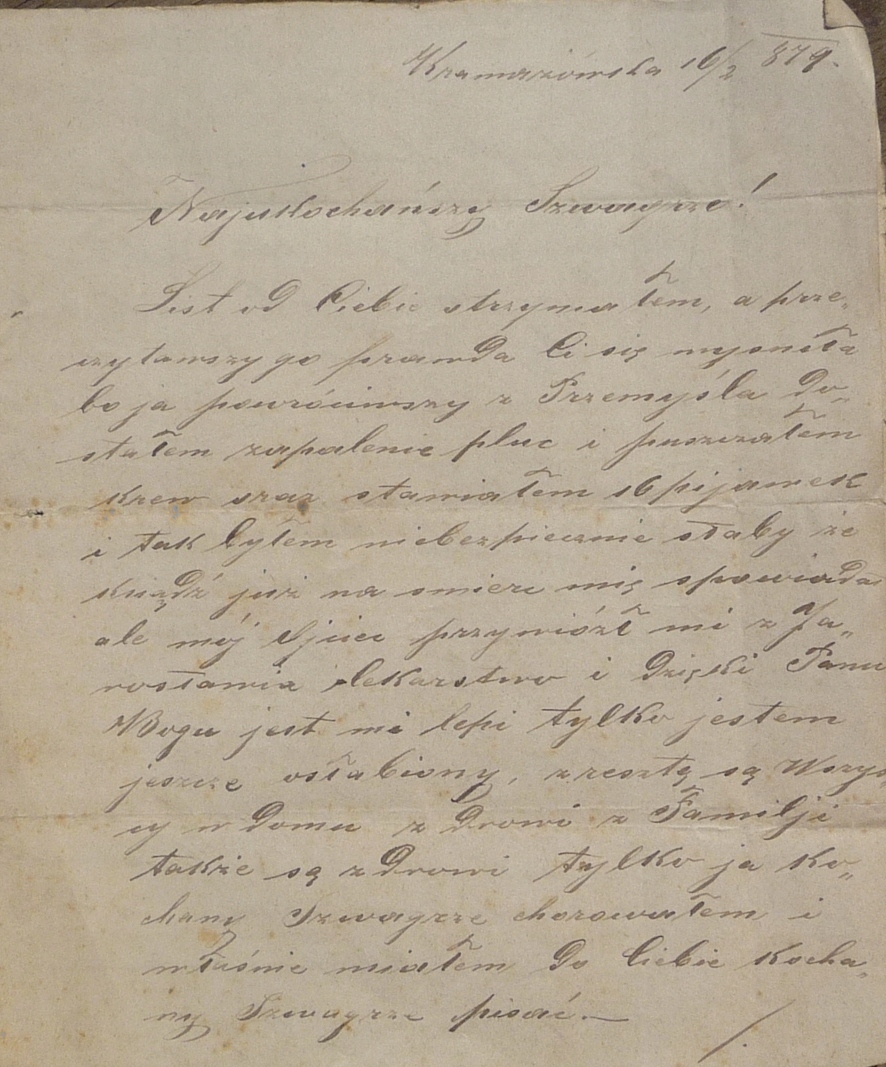 Kramarzówska 16/2 879.
Najukochańszy Szwagrze!
List od Ciebie otrzymałem, a prze„
czytawszy go prawda Ci się wysniła
bo ja powróciwszy z Przemyśla do„
stałem zapalenie pluc i puszczałem
krew oraz stawiałem 16 pijawek
i tak byłem niebezpiecznie słaby że
ksiądź już na smierc mię spowiada
ale mój Ojciec przywiózł mi z Ja„
rosławia lekarstwo i Dzięki Panu
Bogu jest mi lepi tylko jestem
jeszcze osłabiony, zresztą są Wszys„
cy w Domu zdrowi z Familji
także są zdrowi tylko ja ko„
chany Szwagrze chorowałem i
właśnie miałem do Ciebie Kocha„
ny Szwagrze pisać. —